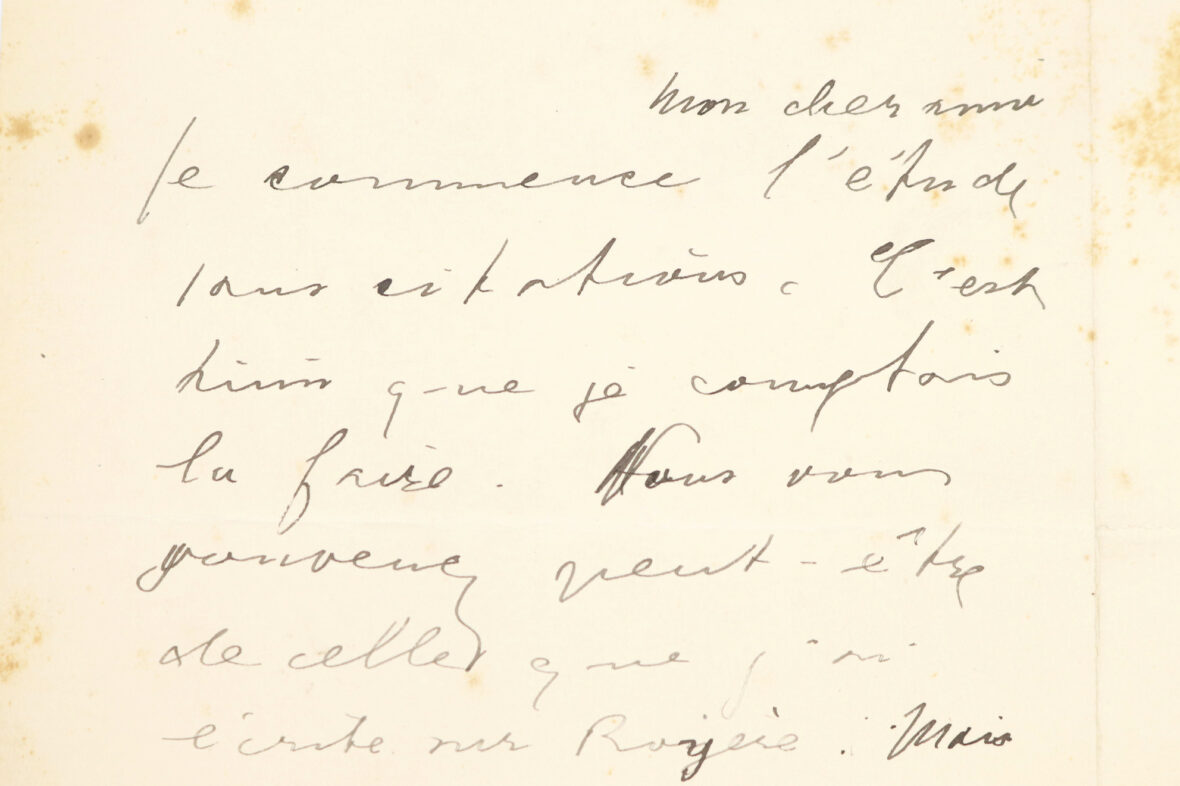 Mon cher ami
Je commence l'étude
sans citations. C'est
bien que je comptais
la faire. Vous vous
souvenez peut-être
de celle que j'ai
écrite sur Royère. Mais